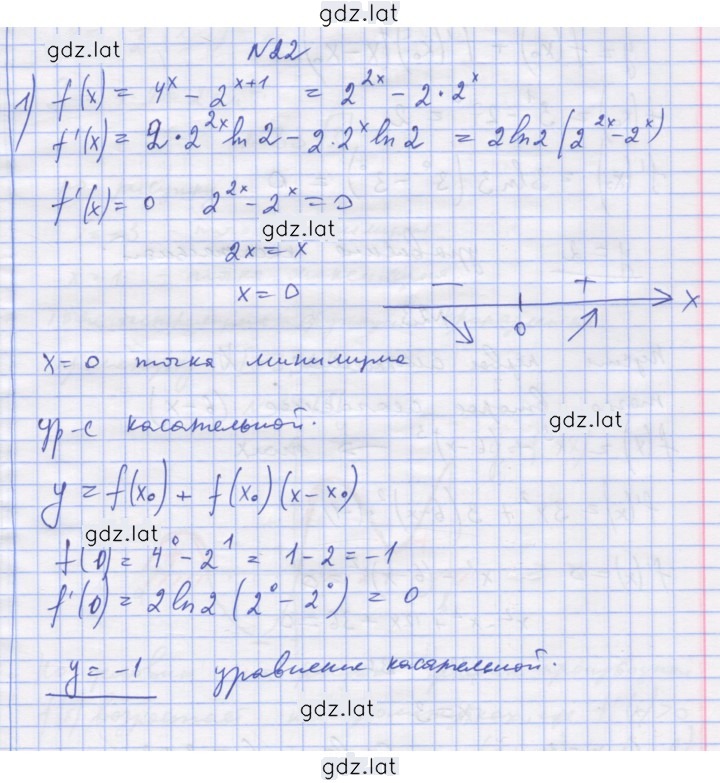 gdz.lat
gdz.lat
N22
1) f(x) = 4^x - 2^{x+1} = 2^{2x} - 2·2^x
f'(x) = 2·2^{2x} ln 2 - 2·2^x ln 2 = 2 ln 2 (2^{2x} - 2^x)
f'(x) = 0 2^{2x} - 2^x = 0
gdz.lat
2x = x
x = 0
− + x
0
x = 0 точка минимума
gdz.lat
ур-е касательной.
y = f(x₀) + f(x₀)(x - x₀)
gdz.lat
f(0) = 4^0 - 2^1 = 1 - 2 = -1
f'(0) = 2 ln 2 (2^0 - 2^0) = 0
y = -1 уравнение касательной.
gdz.lat
gdz.lat